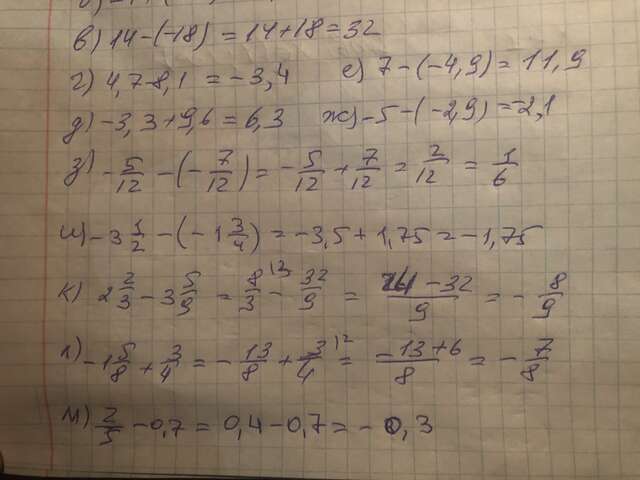 в) 14 - (-18) = 14 + 18 = 32
г) 4,7 - 8,1 = - 3,4 е) 7 - (- 4,9) = 11,9
д) - 3,3 + 9,6 = 6,3 ж) - 5 - (- 2,9) = - 2,1
з) - 5/12 - (- 7/12) = - 5/12 + 7/12 = 2/12 = 1/6
и) - 3 1/2 - (- 1 3/4) = - 3,5 + 1,75 = - 1,75
к) 2 2/3 - 3 5/9 = 8/3 |3 - 32/9 = 24 - 32/9 = - 8/9
л) - 1 5/8 + 3/4 = - 13/8 + 3/4 |2 = - 13 + 6/8 = - 7/8
м) 2/5 - 0,7 = 0,4 - 0,7 = - 0,3